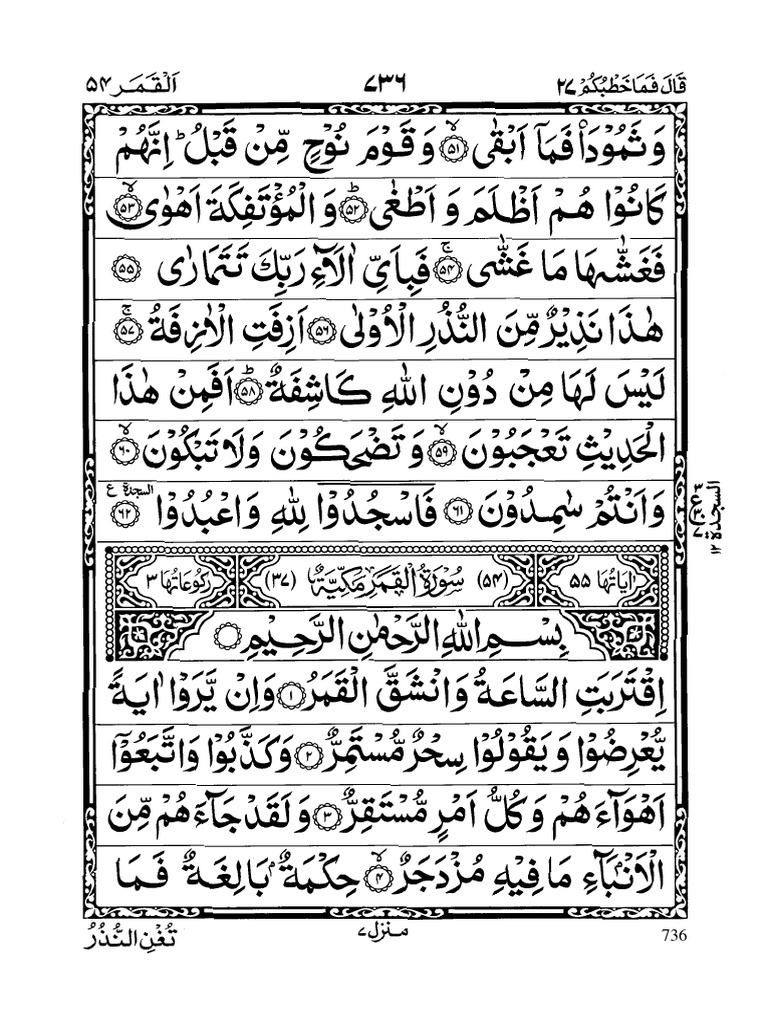 قَالَ فَمَا خَطْبُكُمْ ۲۷ ۷۳۶ اَلْقَمَر ۵۴
وَ ثَمُوْدَا۠ فَمَاۤ اَبْقٰى ۙ﴿۵۱﴾ وَ قَوْمَ نُوْحٍ مِّنْ قَبْلُ ؕ اِنَّهُمْ
كَانُوْا هُمْ اَظْلَمَ وَ اَطْغٰى ؕ﴿۵۲﴾ وَ الْمُؤْتَفِكَةَ اَهْوٰى ۙ﴿۵۳﴾
فَغَشّٰىهَا مَا غَشّٰى ۚ﴿۵۴﴾ فَبِاَىِّ اٰلَآءِ رَبِّكَ تَتَمَارٰى ﴿۵۵﴾
هٰذَا نَذِيْرٌ مِّنَ النُّذُرِ الْاُوْلٰى ﴿۵۶﴾ اَزِفَتِ الْاٰزِفَةُ ۚ﴿۵۷﴾
لَيْسَ لَهَا مِنْ دُوْنِ اللّٰهِ كَاشِفَةٌ ؕ﴿۵۸﴾ اَفَمِنْ هٰذَا
الْحَدِيْثِ تَعْجَبُوْنَ ۙ﴿۵۹﴾ وَ تَضْحَكُوْنَ وَلَا تَبْكُوْنَ ۙ﴿۶۰﴾
وَ اَنْتُمْ سٰمِدُوْنَ ﴿۶۱﴾ فَاسْجُدُوْا لِلّٰهِ وَ اعْبُدُوْا ﴿۶۲﴾ السجدة ع
السجدة ۱۲
اٰيَاتُهَا ۵۵ (۵۴) سُوْرَةُ الْقَمَرِ مَكِّيَّةٌ (۳۷) رُكُوْعَاتُهَا ۳
بِسْمِ اللّٰهِ الرَّحْمٰنِ الرَّحِيْمِ
اِقْتَرَبَتِ السَّاعَةُ وَ انْشَقَّ الْقَمَرُ ﴿۱﴾ وَ اِنْ يَّرَوْا اٰيَةً
يُّعْرِضُوْا وَ يَقُوْلُوْا سِحْرٌ مُّسْتَمِرٌّ ﴿۲﴾ وَ كَذَّبُوْا وَ اتَّبَعُوْۤا
اَهْوَآءَهُمْ وَ كُلُّ اَمْرٍ مُّسْتَقِرٌّ ﴿۳﴾ وَ لَقَدْ جَآءَهُمْ مِّنَ
الْاَنْۢبَآءِ مَا فِيْهِ مُزْدَجَرٌ ۙ﴿۴﴾ حِكْمَةٌۢ بَالِغَةٌ فَمَا
736 منزل ۷ تُغْنِ النُّذُرُ